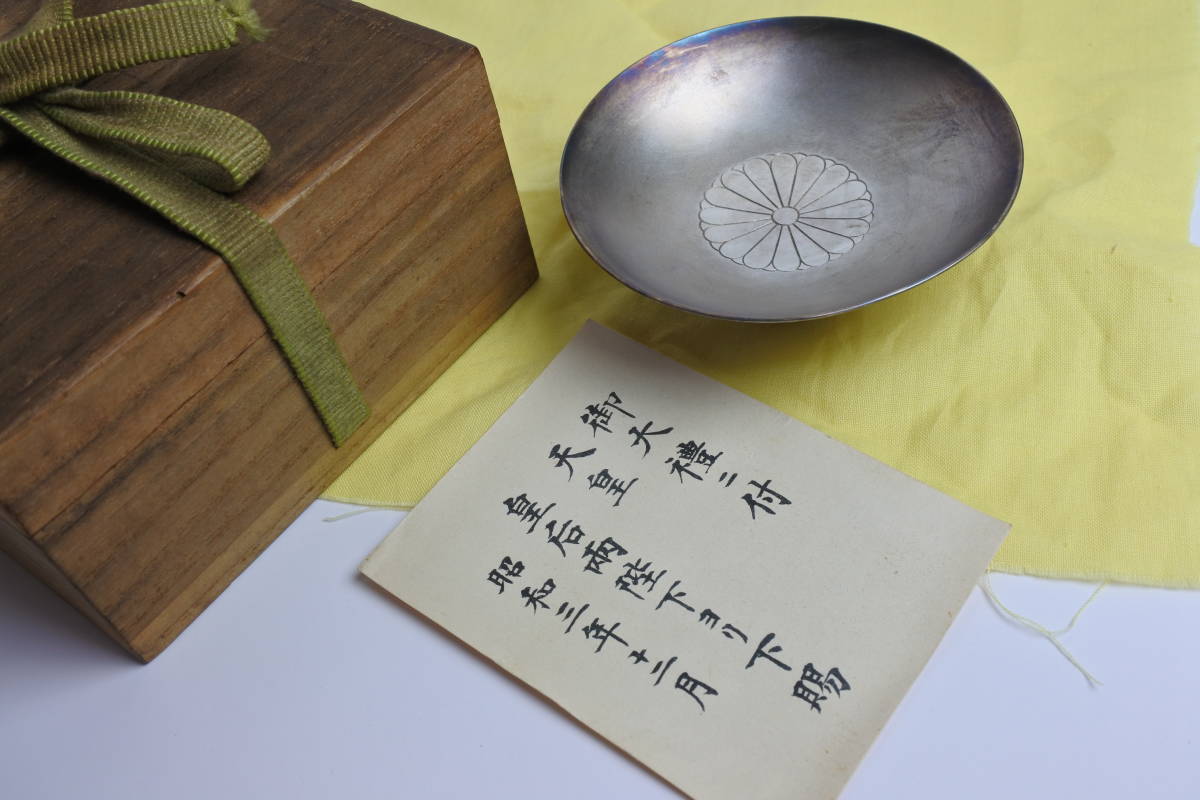 御大禮ニ付
天皇
皇后兩陛下ヨリ下賜
昭和三年十二月